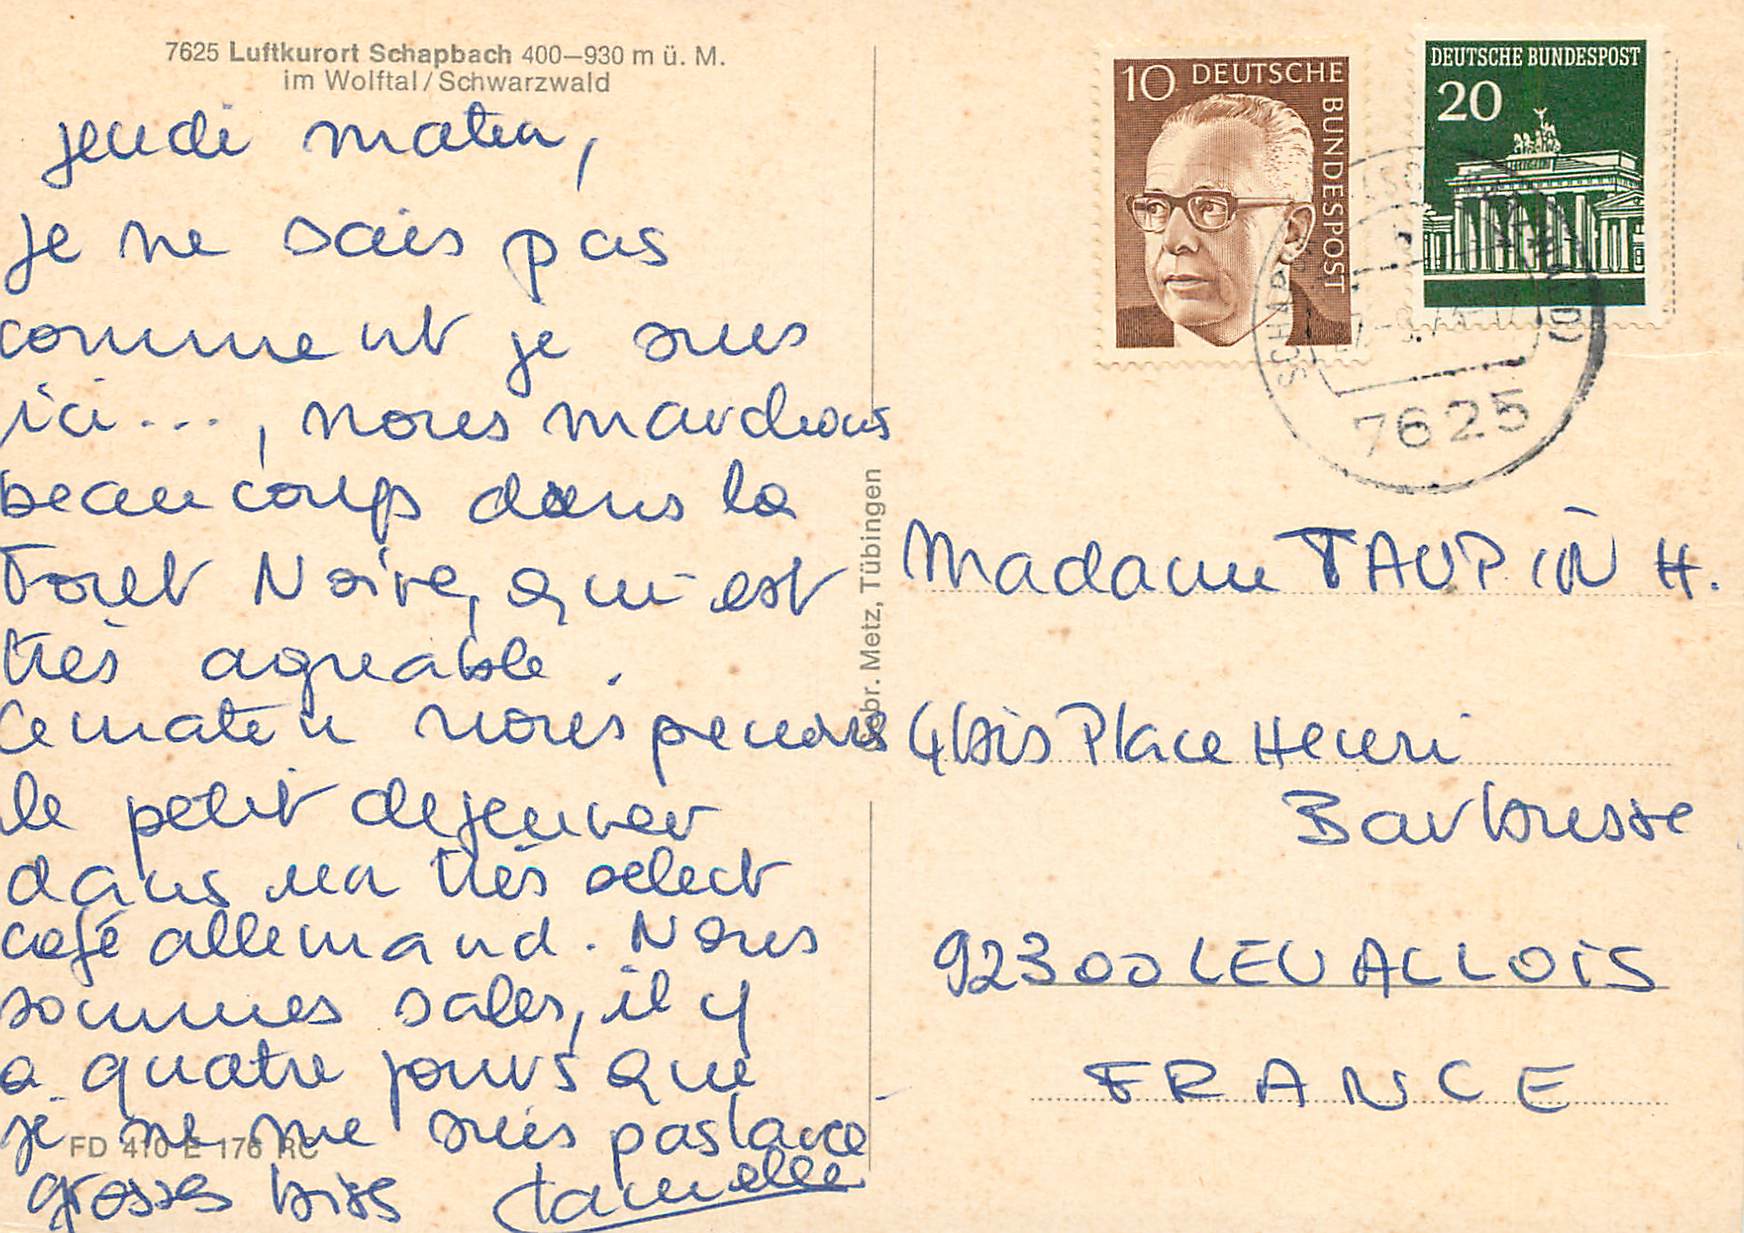 7625 Luftkurort Schapbach 400–930 m ü. M.
im Wolftal / Schwarzwald
jeudi matin,
je ne sais pas
comment je suis
ici ..., nous marchons
beaucoup dans la
Foret Noire, qui est
très agreable.
Ce matin nous prenons
le petit dejeuner
dans un très select
café allemand. Nous
sommes sales, il y
a quatre jours que
je ne me suis pas lavée
grosses bises
FD 410 E 176 RC
Gebr. Metz, Tübingen
10 DEUTSCHE BUNDESPOST
DEUTSCHE BUNDESPOST
20
7625
Madame TAUPIN H.
4 bis Place Henri
Barbusse
92300 LEVALLOIS
FRANCE